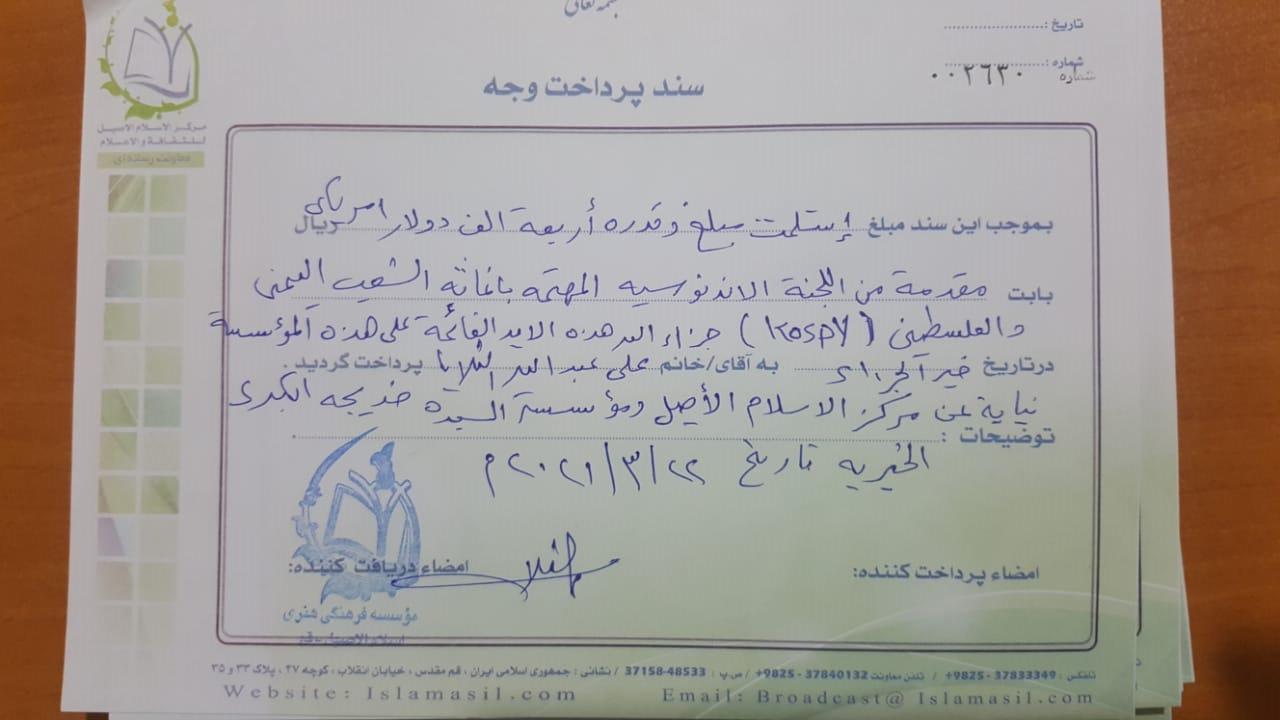 بسمه تعالی
تاریخ :
شماره :
شماره ٠٠٢٦٣٠
سند پرداخت وجه
مرکز الاسلام الاصیل
للثقافة والاعلام
معاونت رسانه‌ای
بموجب این سند مبلغ إستلمت مبلغ وقدره أربعة الف دولار امریکی ریال
بابت مقدمة من اللجنة الاندنوسیه المهتمه باغاثه الشعب الیمنی
والفلسطینی (KOSPY) جزاء الله هذه الاید القائمة علی هذه المؤسسة
درتاریخ خیر الجزاء به آقای/خانم علی عبد الله پرداخت گردید .
نیابة عن مرکز الاسلام الأصیل ومؤسسة السیده خدیجه الکبری
توضیحات :
الخیریه تاریخ ٢٢/٣/٢٠٢١م
امضاء پرداخت کننده:
امضاء دریافت کننده:
مؤسسه فرهنگی هنری
اسلام الاصیل - قم
تلفکس : 37833349 - 9825+ / تلفن معاونت 37840132 - 9825+ / ص پ : 48533-37158 / نشانی : جمهوری اسلامی ایران ، قم مقدس ، خیابان انقلاب ، کوچه ۴۷ ، پلاک ۳۳ و ۳۵
Website: Islamasil.com Email: Broadcast@Islamasil.com